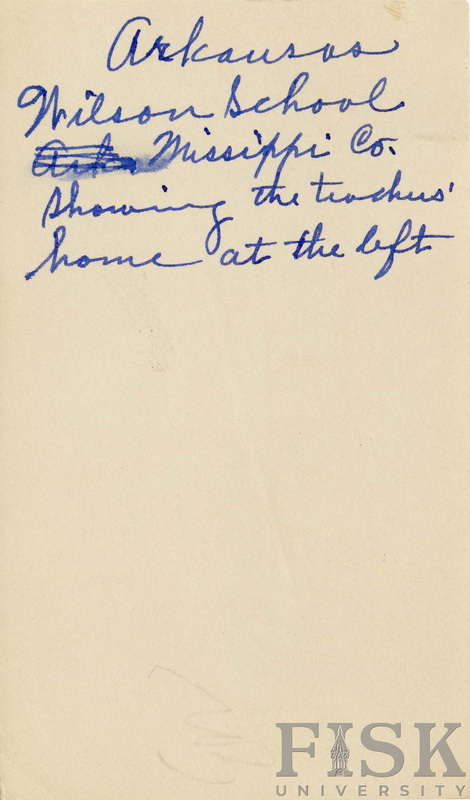 Arkansas
Wilson School
Ark. Missippi Co.
showing the teachers'
home at the left
FISK
UNIVERSITY